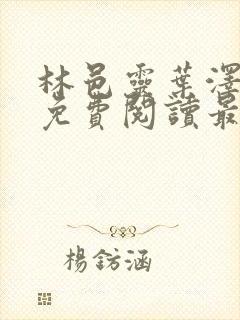 林邑靈葉澤
免費閱讀最
楊鈁涵